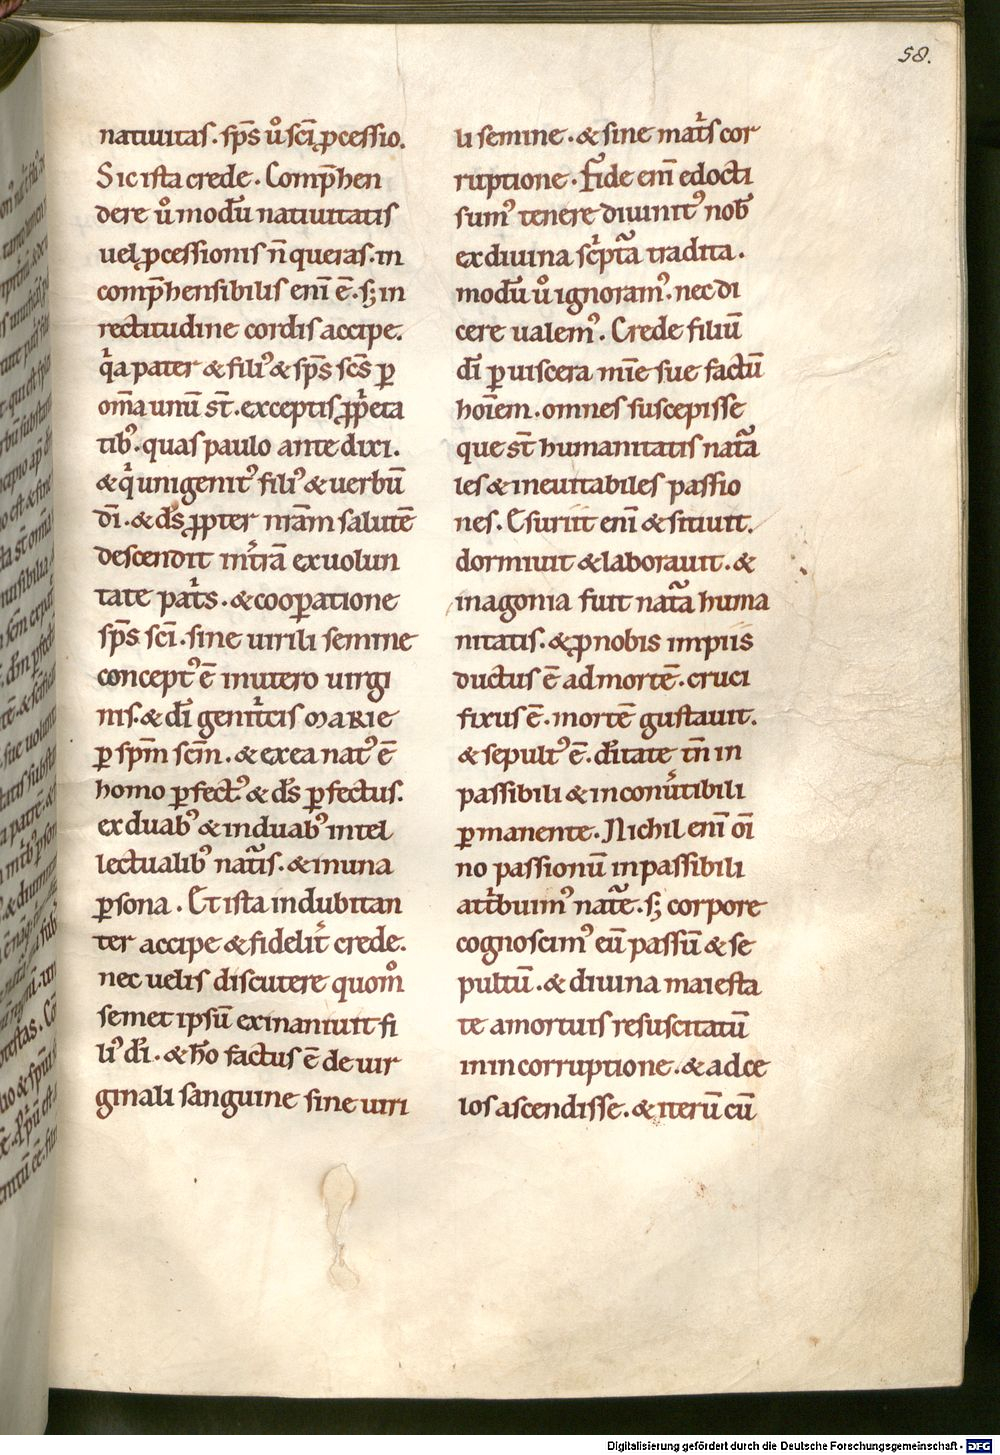 58.
natiuitas. sp̄s ŭ sc̄i ꝓcessio.
Sic ista crede. Comp̄hen
dere ŭ modū natiuitatis
uel ꝓcessionis n̄ queras. in
comp̄hensibilis eni̅ ē. sꝫ in
rectitudine cordis accipe.
qͥa pater & filiꝰ & sp̄s sc̄s ꝑ
om̅a unū st̄. exceptis ꝓp̱ͥeta
tibꝰ. quas paulo ante dixi.
& qͥ unigenitꝰ filiꝰ & uerbū
dī. & ds̄ ꝓpter nr̄am salutē
descendit int̾rā ex uolun
tate patͥs. & cooꝑatione
sp̄s sc̄i. sine uirili semine
conceptꝰ ē in utero uirgi
nis. & dī genitͥcis MARIE
ꝑ sp̄m sc̄m. & ex ea natꝰ ē
homo ꝑfectꝰ & ds̄ ꝑfectus.
ex duabꝰ & in duabꝰ intel
lectualibꝰ nat̾is. & in una
ꝑsona. Et ista indubitan
ter accipe & fidelit̾ crede.
nec uelis discutere quom̊
semet ipsū exinaniuit fi
liꝰ dī. & ho̅ factus ē de uir
ginali sanguine sine uiri
li semine. & sine matͥs cor
ruptione. Fide eni̅ edocti
sumꝰ tenere diuinitꝰ nob̄
ex diuina scͥptᷓa tradita.
modū ŭ ignoramꝰ. nec di
cere ualemꝰ. Crede filiū
dī ꝑ uiscera mīe sue factū
hoi̅em. omnes suscepisse
que st̄ humanitatis natᷓa
les & ineuitabiles passio
nes. Esuriit eni̅ & sitiuit.
dormiuit & laborauit. &
in agonia fuit natᷓa huma
nitatis. & ꝓ nobis impiis
ductus ē ad mortē. cruci
fixus ē. mortē gustauit.
& sepultꝰ ē. dītate tn̄ in
passibili & inconu̾tibili
ꝑmanente. Nichil eni̅ oi̅
no passionū inpassibili
atͥbuimꝰ natᷓe. sꝫ corpore
cognoscimꝰ eū passū & se
pultū. & diuina maiesta
te a mortuis resuscitatū
in incorruptione. & ad ce
los ascendisse. & iterū cū
Digitalisierung gefördert durch die Deutsche Forschungsgemeinschaft - DFG